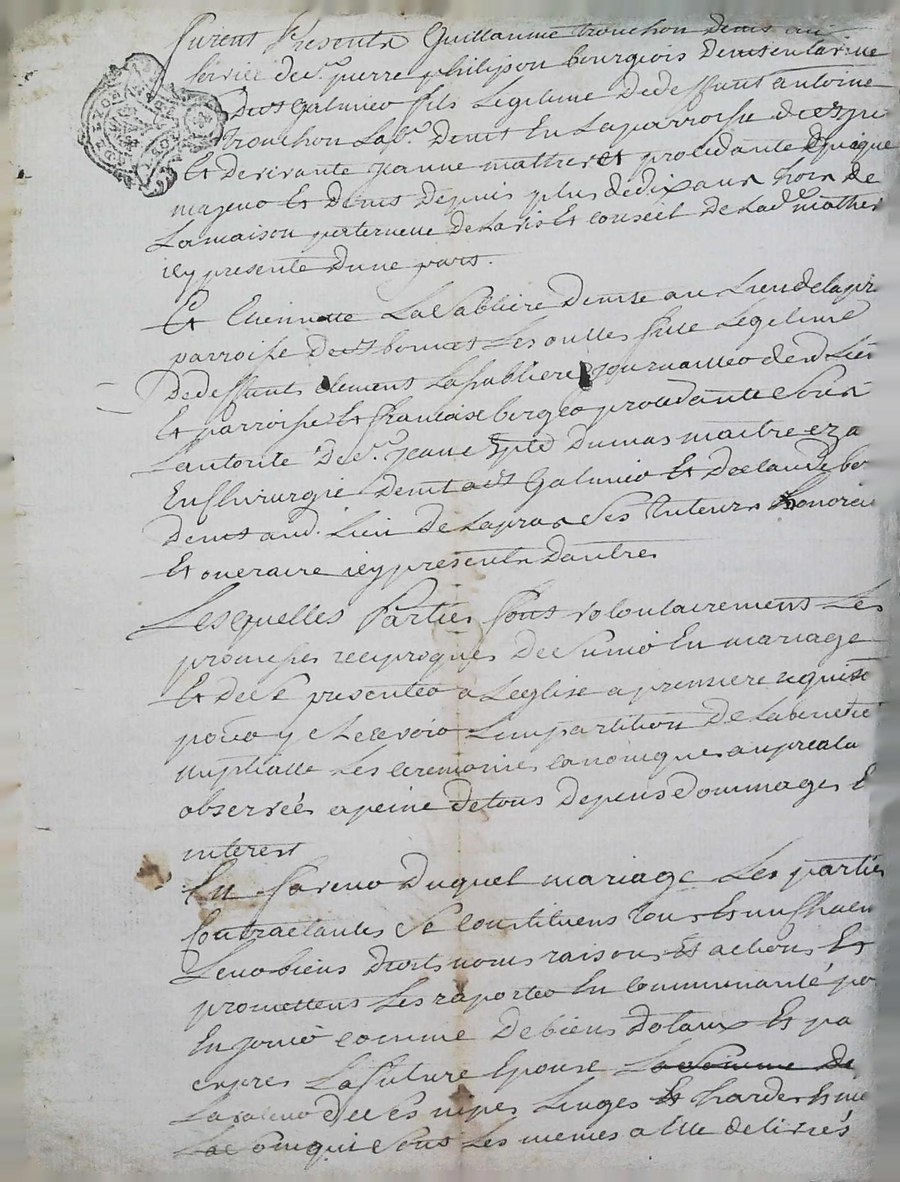 furent Presents Guillaume trouchon demt au
service de sr. pierre philipon bourgeois demt en la ville
De st Galmier fils Legitime De deffunt antoine
trouchon Labr. Demt En La parroisse de
Et De vivante jeanne procedante quoique
majeur Et Demt Depuis plus de dix ans hors de
La maison paternelle de La vis Et conseil De Lade.
icy presente Dune part.
Et Etiennette La Sabliere Demte au Lieu de
parroisse De st bonnet Les oulles fille Legitime
De deffunt clement La sabliere journallier de
Et parroisse Et francoise procedante
Lautorité De sr. jean Dumas maitre
En Chirurgie Demt a st Galmier Et De claude
Demt aud. Lieu De Lapra Ses Tuteurs honoraire
Et oneraire icy presents Dautre
Lesquelles Parties font volontairement Les
promesses reciproques De Sunir En mariage
Et De Se presenter a Leglise a premiere requise
pour y recevoir Limpartition De La benedi
nuptialle Les Ceremonies canoniques au preala
observées a peine de tous Depens Dommages E
interest
En faveur Duquel mariage Les parties
Contractantes Se constituent tous Et un chacun
Leur biens Droits noms raisons Et actions Et
promettent Les raporter En Communauté po
En jouir comme De biens Dotaux Et pa
expres La future Epouse La Somme de
La valeur de ces nipes Linges Et hardes
Les memes a Elle delivrés